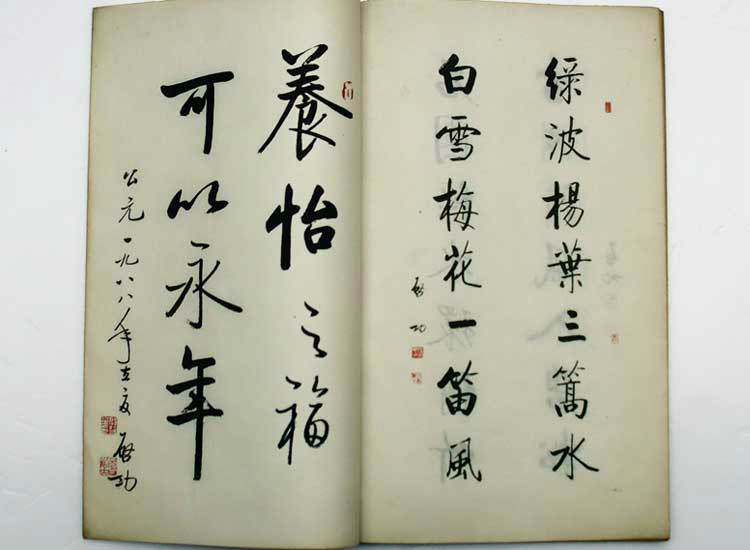 緑波楊葉三篙水
白雪梅花一笛風
啓功
養怡之福
可以永年
公元一九八八年立夏
啓功